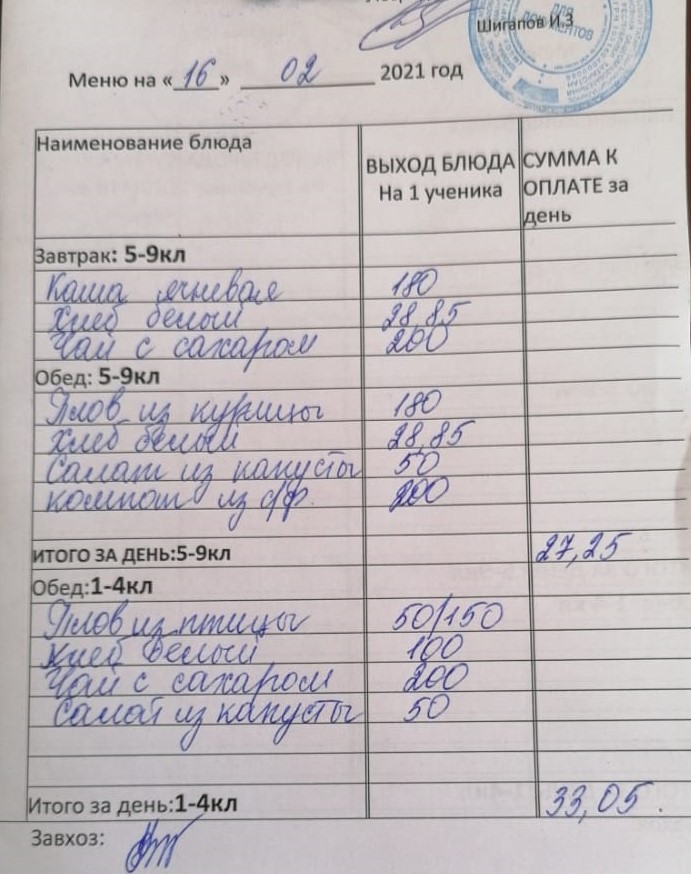 Шигапов И.З
ДЛЯ ДОКУМЕНТОВ
Меню на «16» 02 2021 год
Наименование блюда ВЫХОД БЛЮДА На 1 ученика СУММА К ОПЛАТЕ за день
Завтрак: 5-9кл
Каша ячневая 180
Хлеб белый 28,85
Чай с сахаром 200
Обед: 5-9кл
Плов из курицы 180
Хлеб белый 28,85
Салат из капусты 50
компот из с/ф. 200
ИТОГО ЗА ДЕНЬ:5-9кл 27,25
Обед:1-4кл
Плов из птицы 50/150
Хлеб белый 100
Чай с сахаром 200
Салат из капусты 50
Итого за день:1-4кл 33,05
Завхоз: